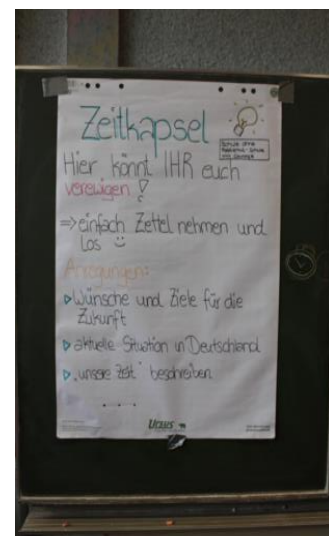 Zeitkapsel
Schule ohne
Rassismus - Schule
mit Courage
Hier könnt IHR euch
verewigen!
⇒ einfach Zettel nehmen und
los ☺
Anregungen:
▷ Wünsche und Ziele für die
Zukunft
▷ aktuelle Situation in Deutschland
▷ "unsere Zeit" beschreiben
...